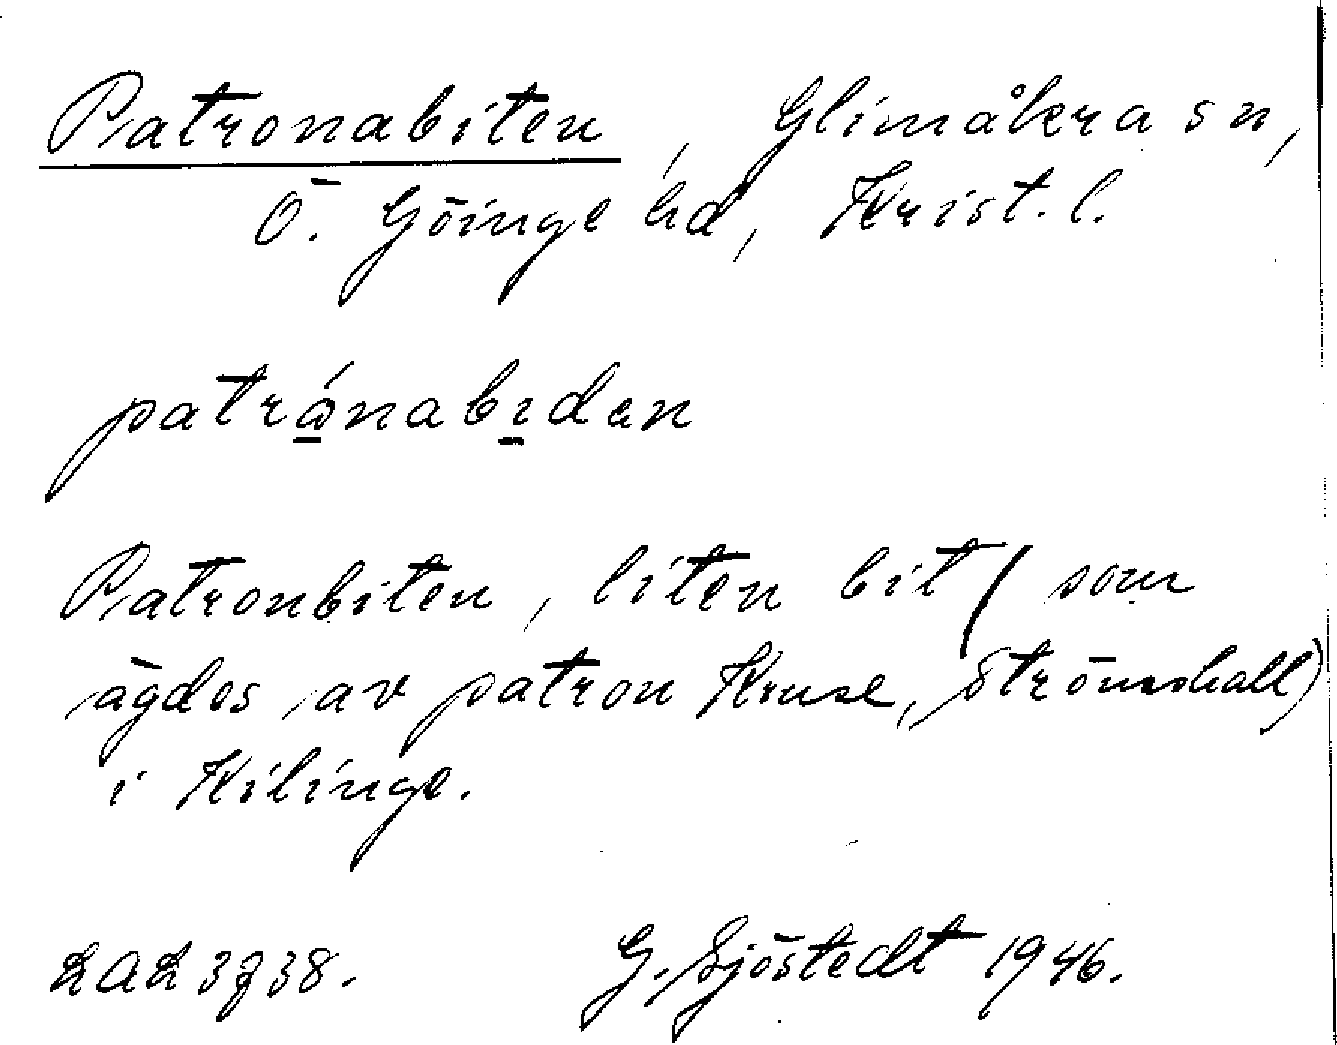 Patronabiten, Glimåkra sn,
Ö. Göinge hd, Krist. l.
patrånabıdan
Patronbiten, liten bit (som
ägdes av patron Kruse, Strömshall)
i Kilinge.
LAL 3738.  G. Sjöstedt 1946.